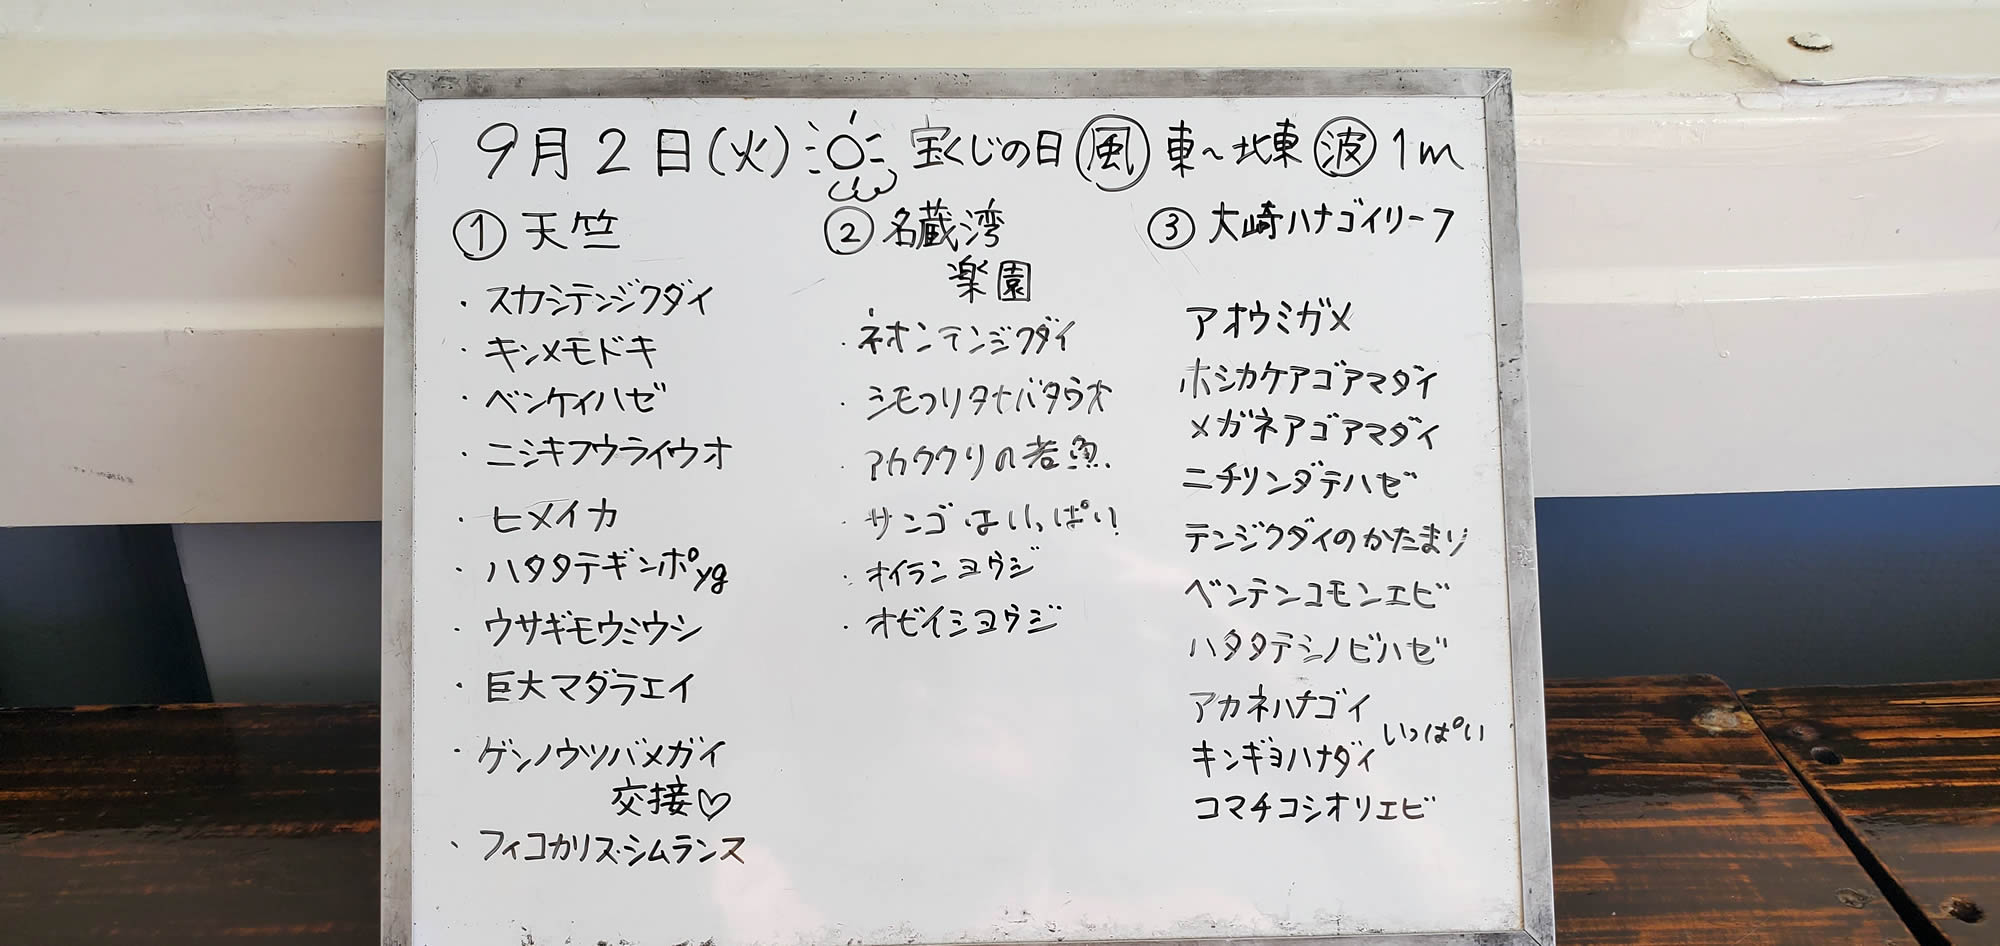 9月2日(火) 宝くじの日 風 東~北東 波 1m
① 天竺
・スカシテンジクダイ
・キンメモドキ
・ベンケイハゼ
・ニシキフウライウオ
・ヒメイカ
・ハタタテギンポyg
・ウサギモウミウシ
・巨大マダラエイ
・ゲンノウツバメガイ
交接♡
・フィコカリス・シムランス
② 名蔵湾
楽園
・ネオンテンジクダイ
・シモフリタナバタウオ
・アカククリの若魚
・サンゴはいっぱい!
・オイランヨウジ
・オビイシヨウジ
③ 大崎ハナゴイリーフ
アオウミガメ
ホシカケアゴアマダイ
メガネアゴアマダイ
ニチリンダテハゼ
テンジクダイのかたまり
ベンテンコモンエビ
ハタタテシノビハゼ
アカネハナゴイ
キンギョハナダイ いっぱい
コマチコシオリエビ